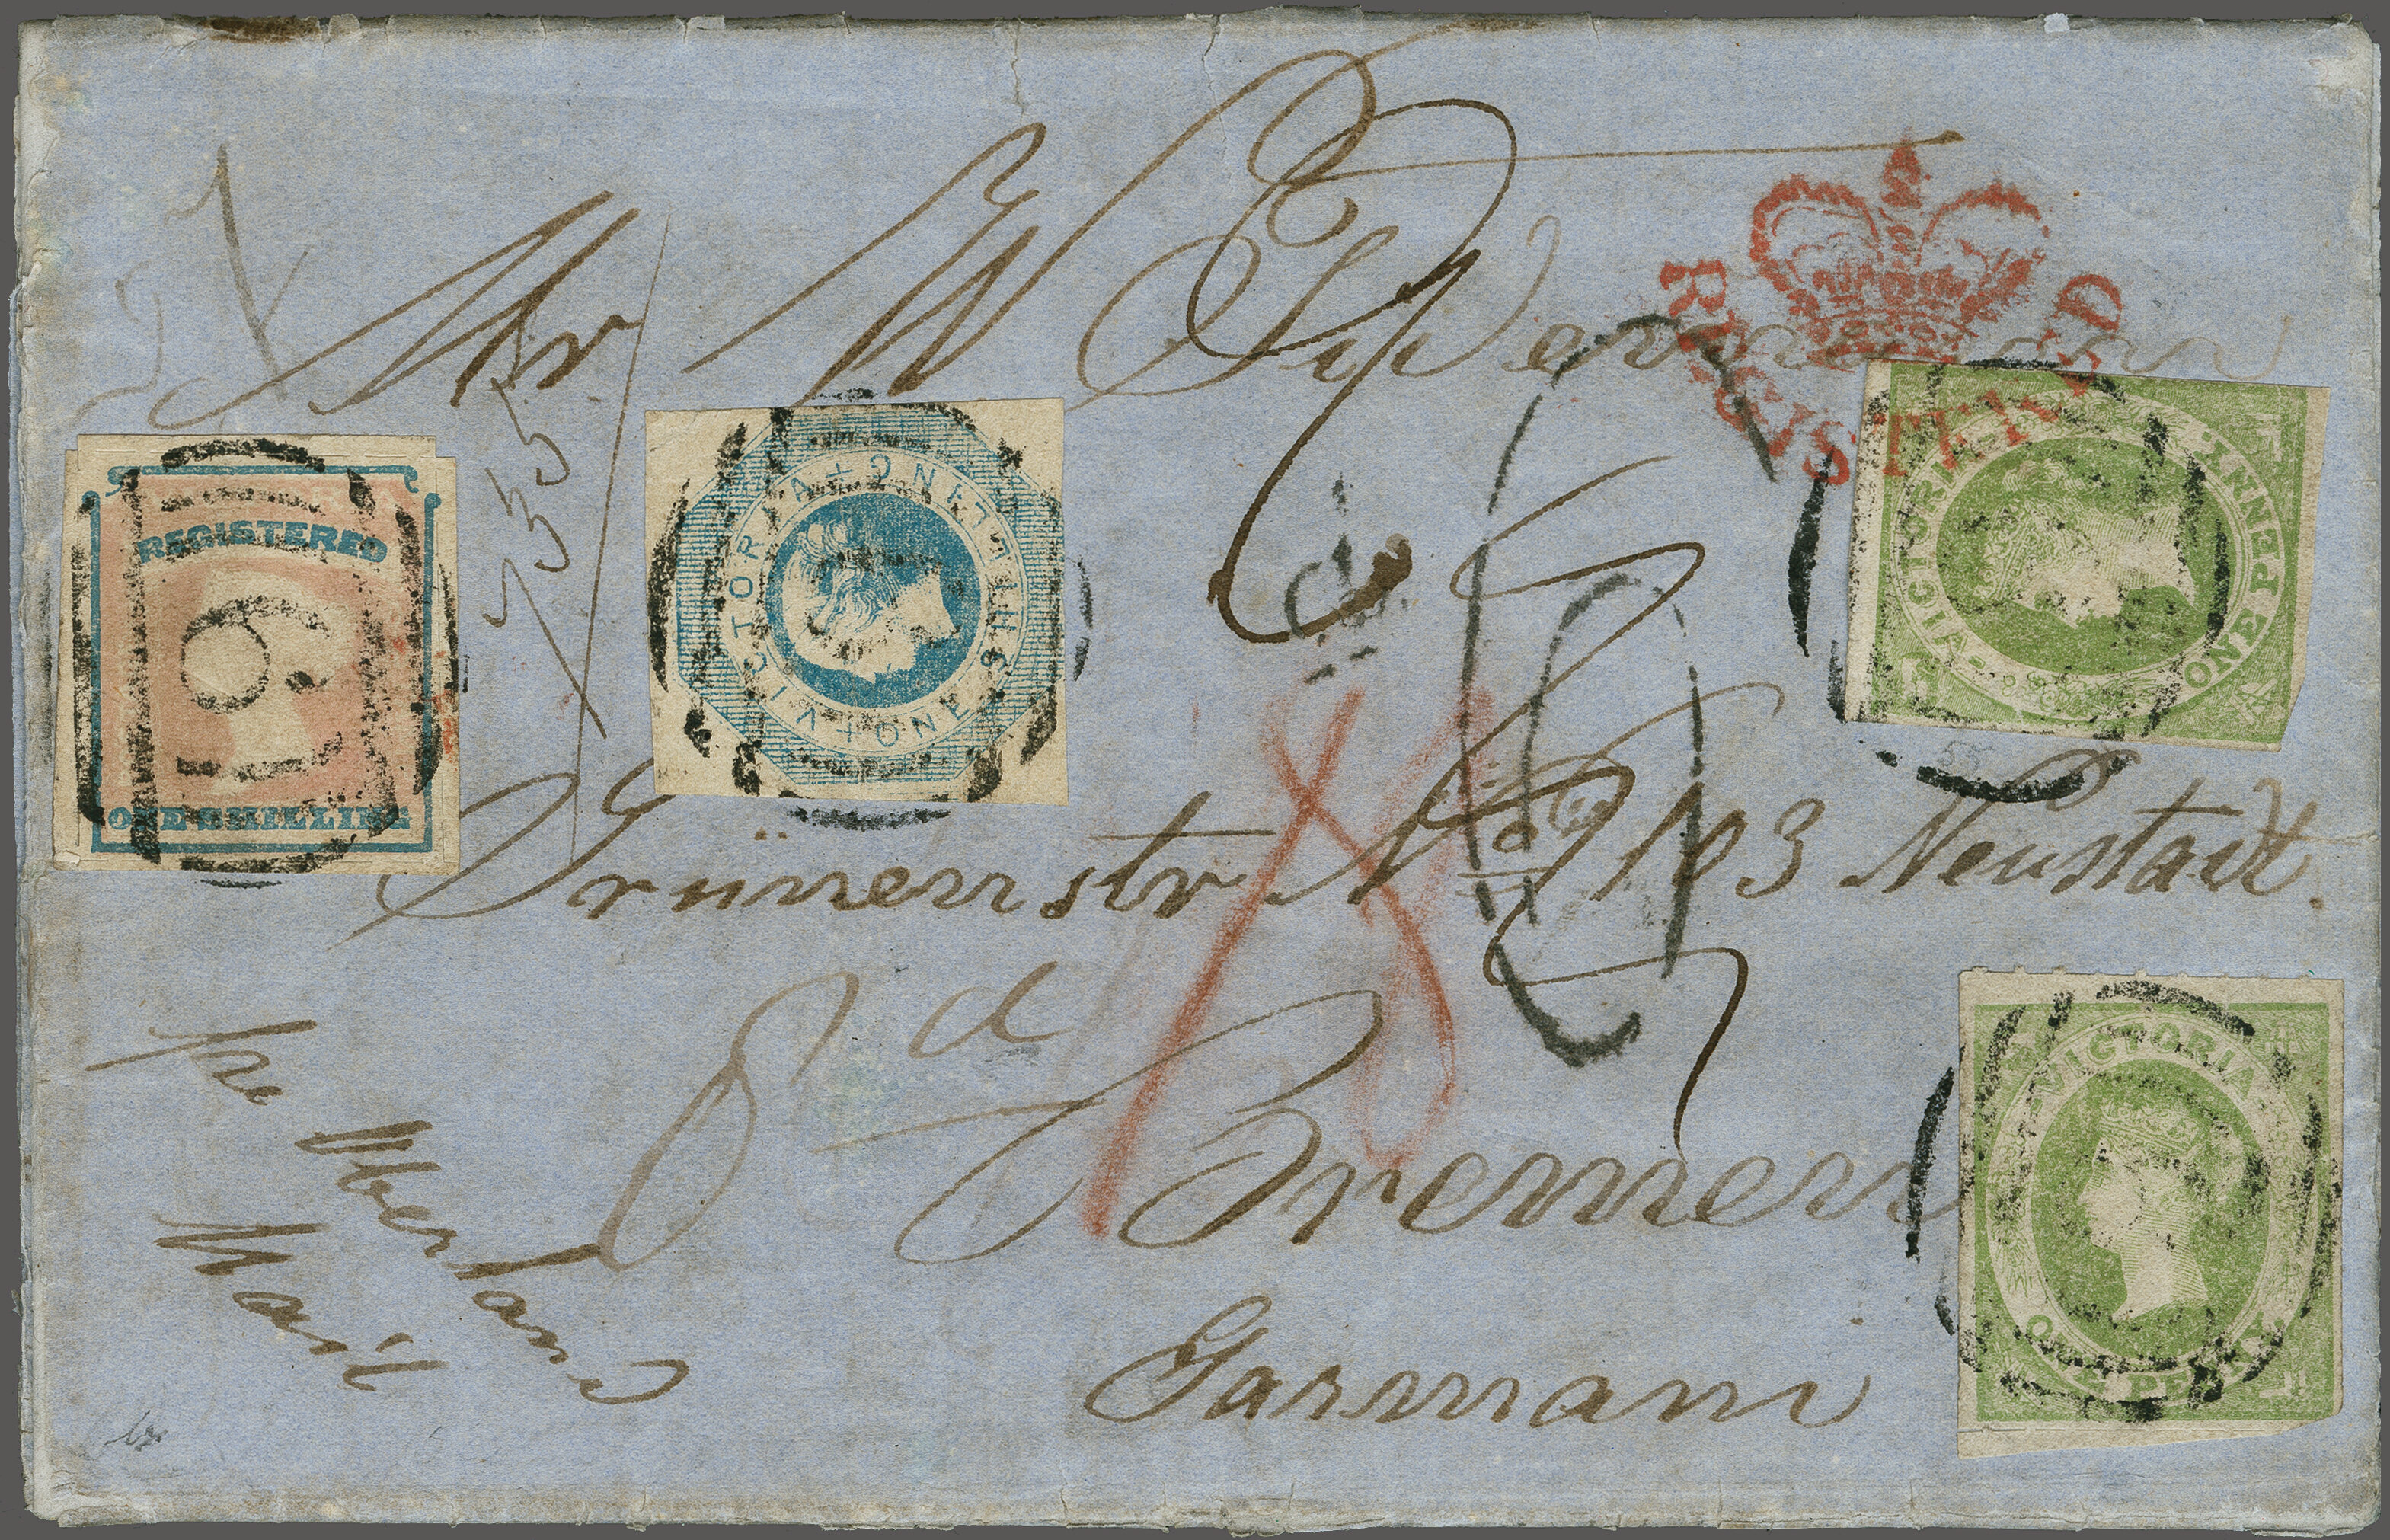 Mr W
REGISTERED
REGISTERED
ONE SHILLING
VICTORIA + ONE SHILLING +
VICTORIA
ONE PENNY.
7351
Grünenstr No 103 Neustadt
8d
Bremen
Garmani
Per Oberland
Mail
VICTORIA
ONE PENNY.